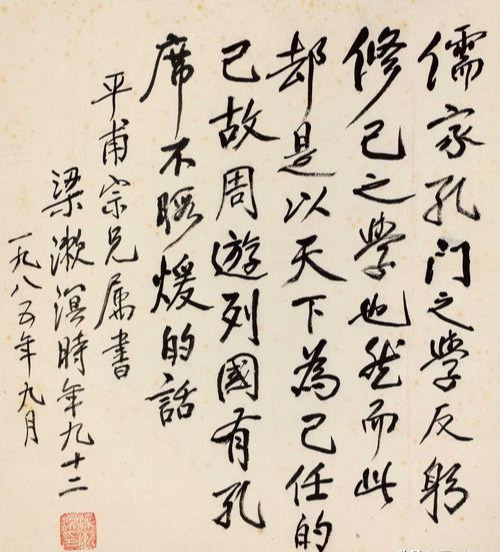 儒家孔门之學反躬
修己之學也然而此
却是以天下為己任的
己故周遊列國有孔
席不暇煖的話
平甫宗兄属書
梁漱溟時年九十二
一九八五年九月